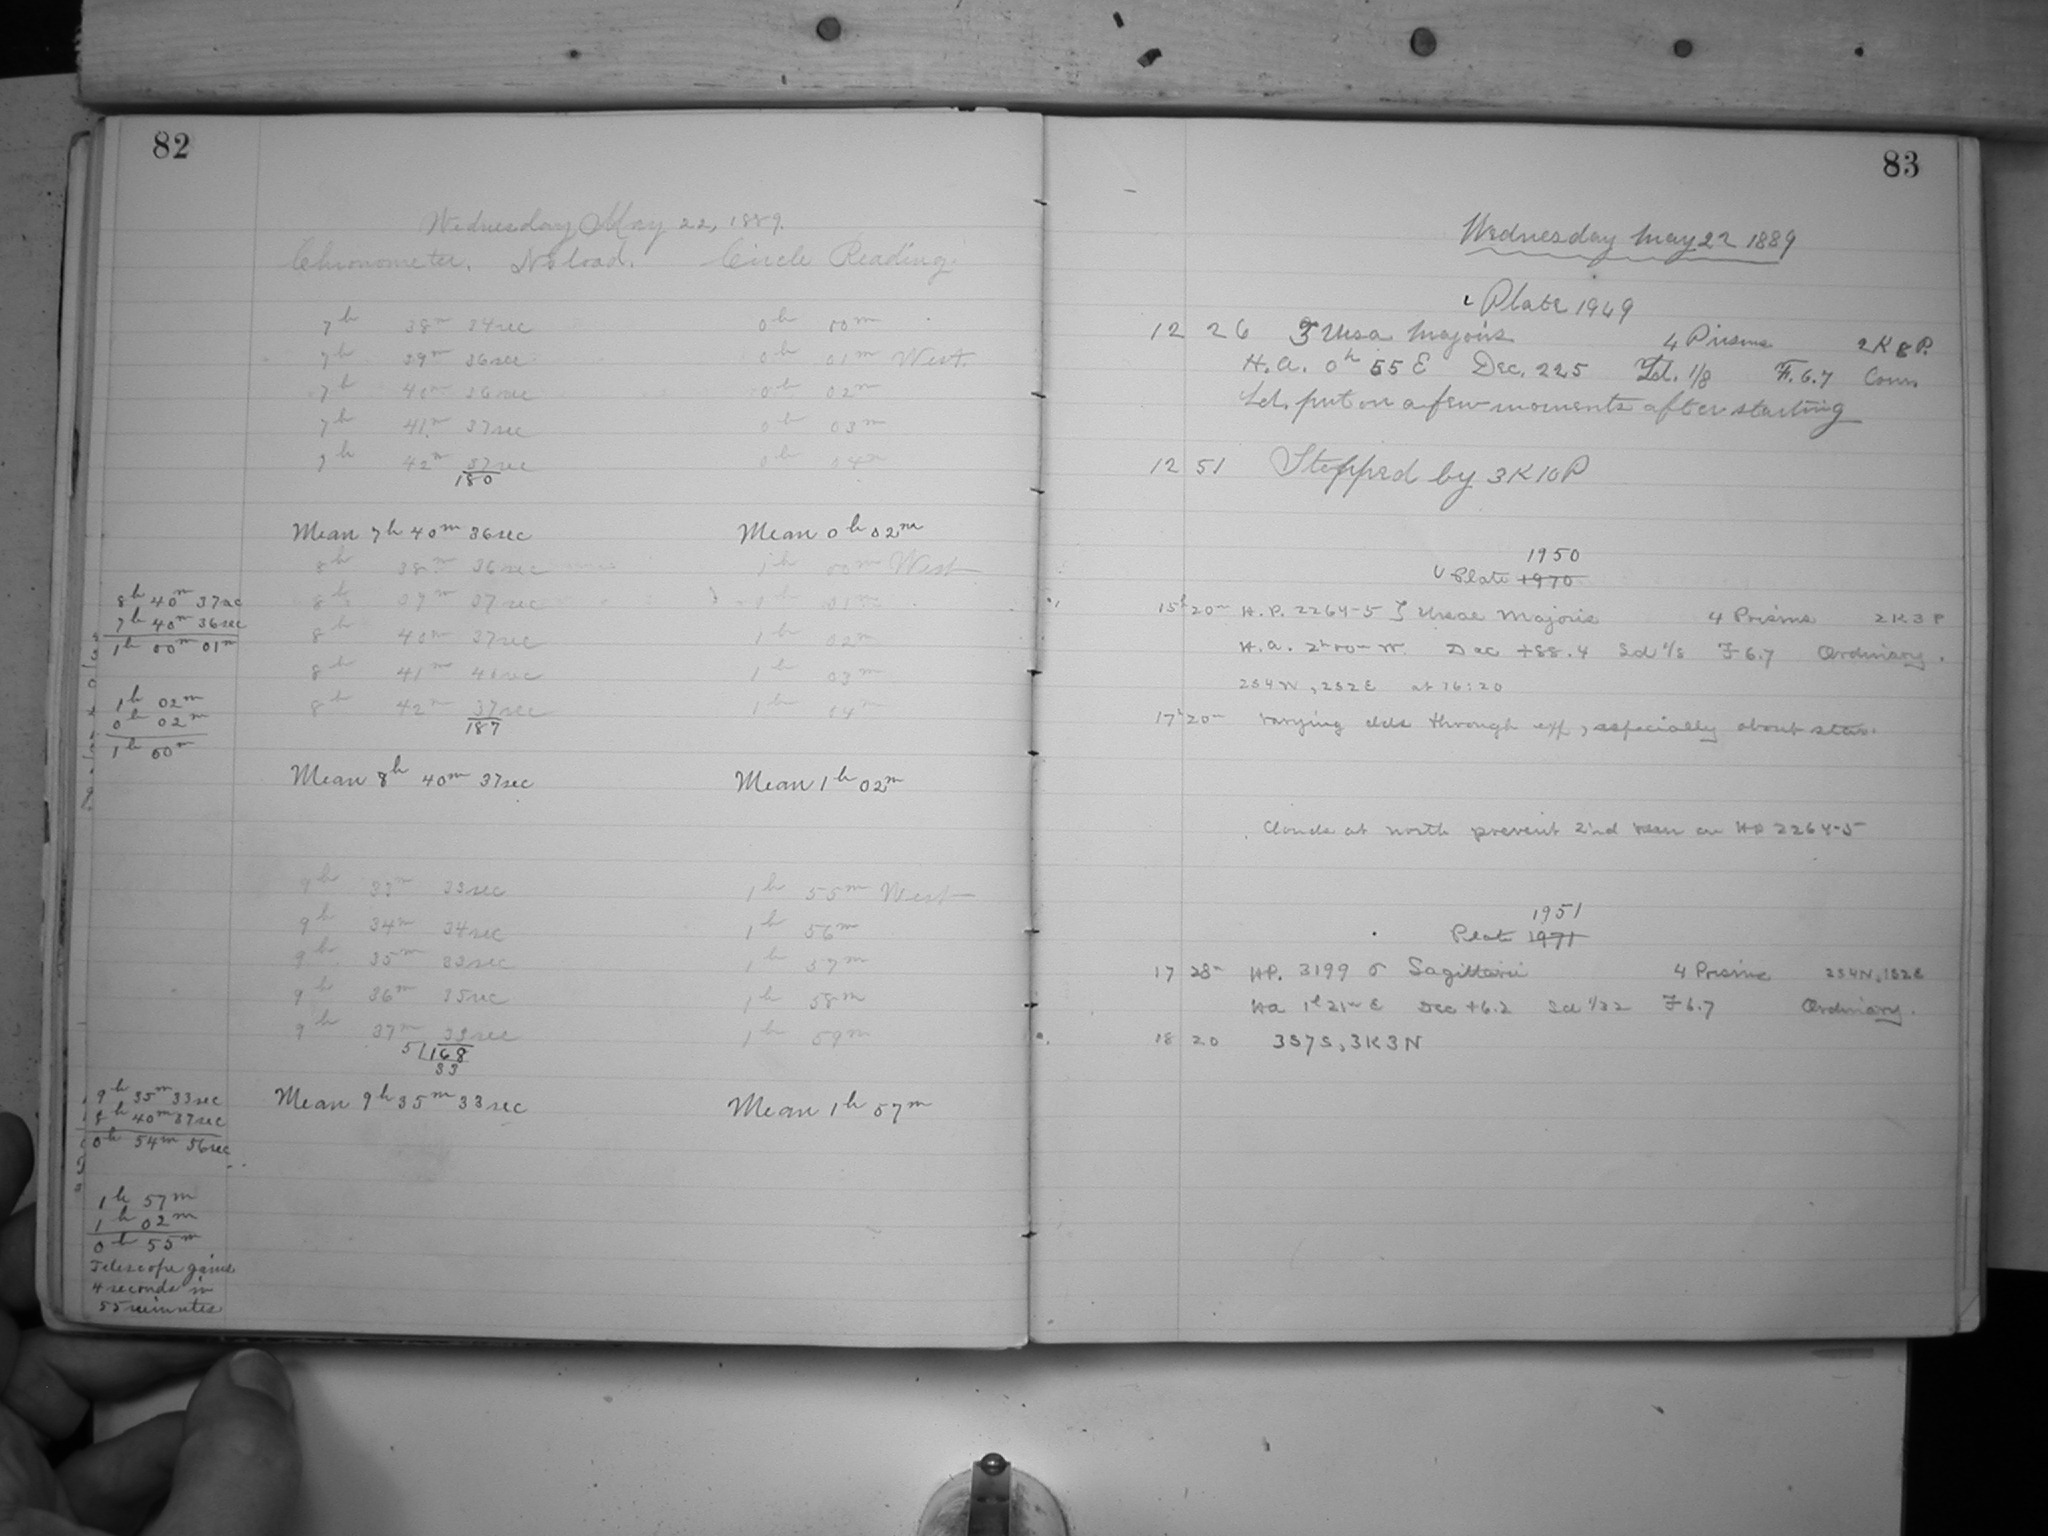 82
Wednesday May 22, 1889.
Chronometer. No load. Circle Reading.
7h 38m 34sec 0h 00m
7h 39m 36sec 0h 01m West.
7h 40m 36sec 0h 02m
7h 41m 37sec 0h 03m
7h 42m 37sec 0h 04m
180
Mean 7h 40m 36sec Mean 0h 02m
8h 38m 36sec 1h 00m West
8h 07m 07sec 1h 01m
8h 40m 37sec 1h 02m
8h 41m 41sec 1h 03m
8h 42m 37sec 1h 04m
187
Mean 8h 40m 37sec Mean 1h 02m
9h 33m 33sec 1h 55m West
9h 34m 34sec 1h 56m
9h 35m 33sec 1h 57m
9h 36m 35sec 1h 58m
9h 37m 33sec 1h 59m
5/168
33
Mean 9h 35m 33sec Mean 1h 57m
8h 40m 37sec
7h 40m 36sec
1h 00m 01m
1h 02m
0h 02m
1h 00m
9h 35m 33sec
8h 40m 37sec
0h 54m 56sec
1h 57m
1h 02m
0h 55m
Telescope gains
4 seconds in
55 minutes
83
Wednesday May 22 1889
Plate 1949
12 26 ζ Ursa Majoris 4 Prisms 2K8P.
H.A. 0h 55 E Dec. 225 Sd. 1/8 F. 6.7 Comm.
Sd. put on a few moments after starting
12 51 Stopped by 3K10P
1950
Plate 1970
15h 20m H.P. 2264-5 ζ Ursae Majoris 4 Prisms 2K3P
H.A. 2h 00m W. Dec +88.4 Sd 1/8 F 6.7 Ordinary.
2S4N, 2S2E at 16:20
17h 20m Varying clds through exp, especially about star.
Clouds at north prevent 2nd on HP 2264-5
1951
Plate 1971
17 28m HP. 3199 σ Sagittarii 4 Prisms 2S4N, 1S2E
HA 1h 21m E Dec +6.2 Sd 1/32 F 6.7 Ordinary.
18 20 3S7S, 3K3N